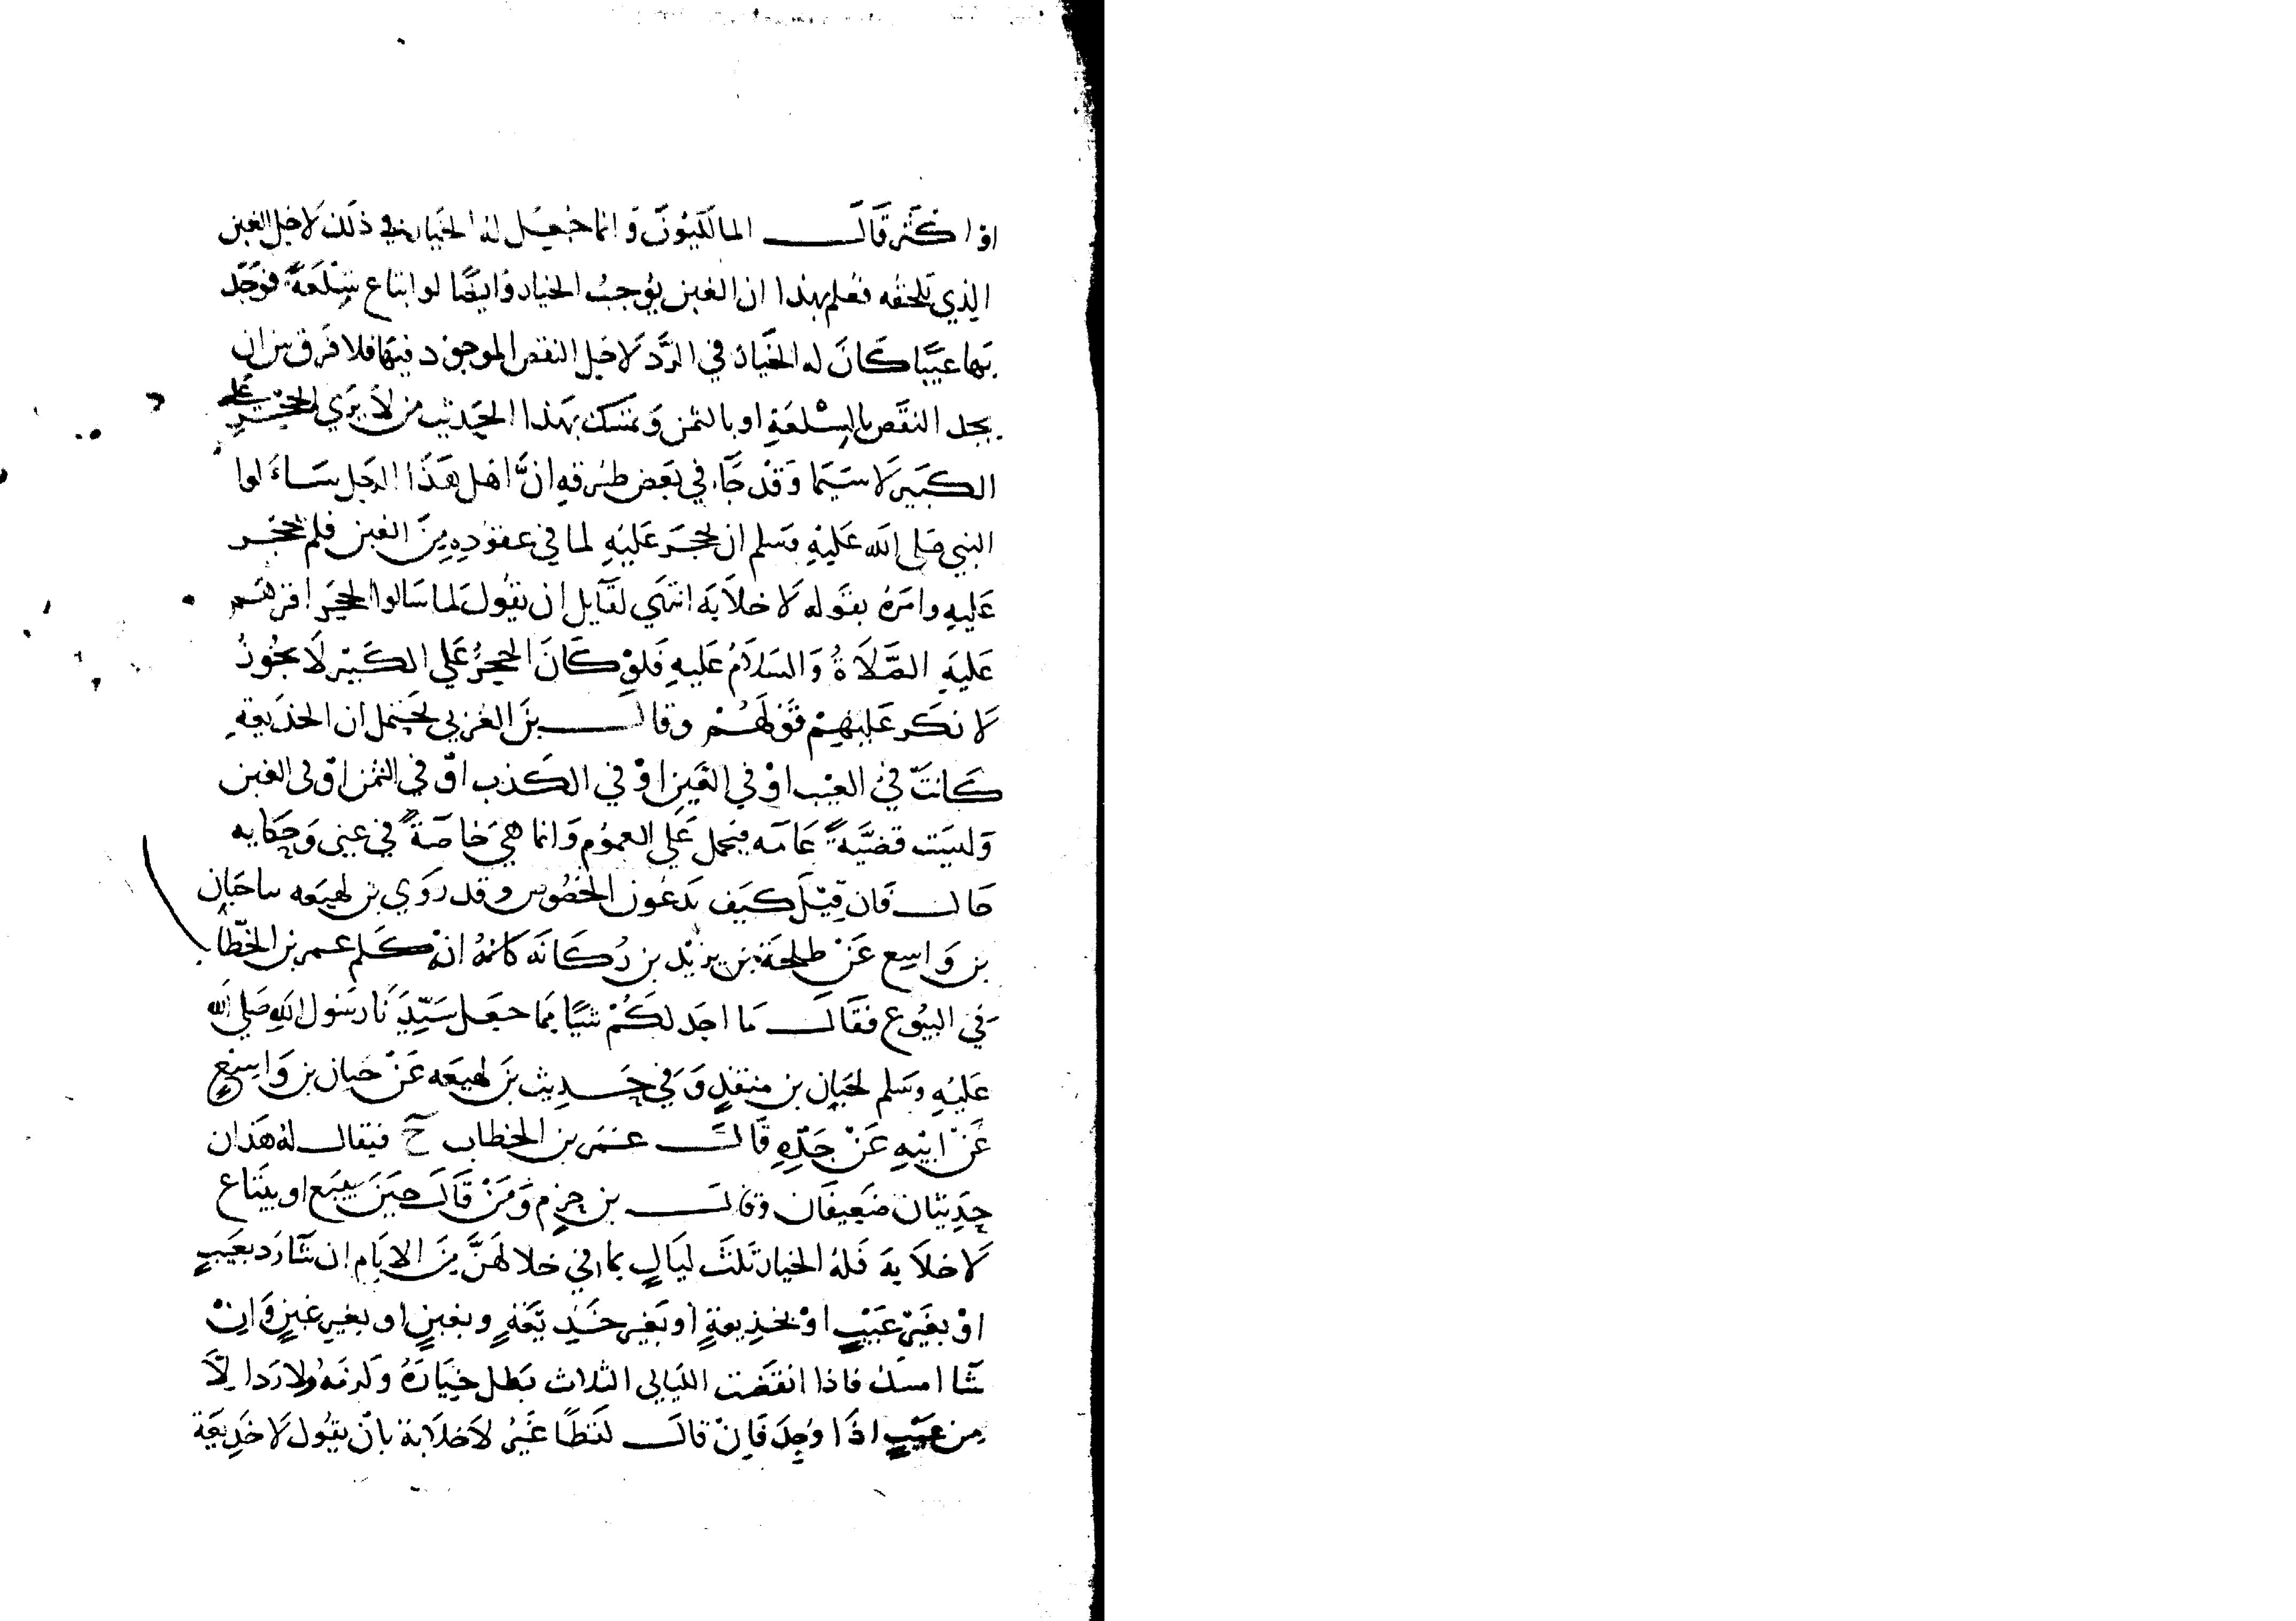 اذا كثر قال المالكيون وانما جعل له الخيار في ذلك لاجل الغبن
الذي يلحقه فعلم بهذا ان الغبن يوجب الخيار وايضًا لو ابتاع سلعةً فوجد
بها عيبًا كان له الخيار في الرد لاجل النقص الموجود فيها فلا فرق بين ان
يجد النقص بالسلعة او بالثمن وتمسك بهذا الحديث من لا يري الحجر علي
الكبير لا سيما وقد جآء في بعض طرقه انّ اهل هذا الرجل ساءلوا
النبي صلى الله عليه وسلم ان يحجر عليه لما في عقوده من الغبن فلم يحجر
عليه وامره بقوله لا خلابة انتهي لقايل ان يقول لما سالوا الحجر اقرهم
عليه الصلاة والسلام عليه فلو كان الحجر علي الكبير لا يجوز
لانكر عليهم قولهم وقال بن العربي يحتمل ان الخديعة
كانت في العيب او في العين او في الكذب او في الثمن او في الغبن
وليست قضيةً عامه فيحمل علي العموم وانما هي خاصةً في عين وحكايه
حال فان قيل كيف يدعون الخصوص وقد روي بن لهيعه سا حبان
بن واسع عن طلحة بن يزيد بن ركانه كانه انه كلم عمر بن الخطاب
في البيوع فقال ما اجد لكم شيًا مما جعل سيدنا رسول الله صلي الله
عليه وسلم لحبان بن منقذ وفي حديث بن لهيعه عن حبان بن واسع
عن ابيه عن جده قال عمر بن الخطاب ح فيقال له هذان
حديثان ضعيفان وقال بن حزم ومن قال حين يبيع او يبتاع
لا خلابة فله الخيار ثلث ليالٍ بما في خلالهن من الايام ان شآ رد بعيبٍ
او بغير عيبٍ او بخديعةٍ او بغير خديعةٍ وبغبنٍ او بغير غبنٍ وان
شآ امسك فاذا انقضت الليالي الثلاث بطل خياره ولزمه ولا رد الا
من عيبٍ اذا وجد فان قال لفظًا غير لا خلابة بان يقول لا خديعة